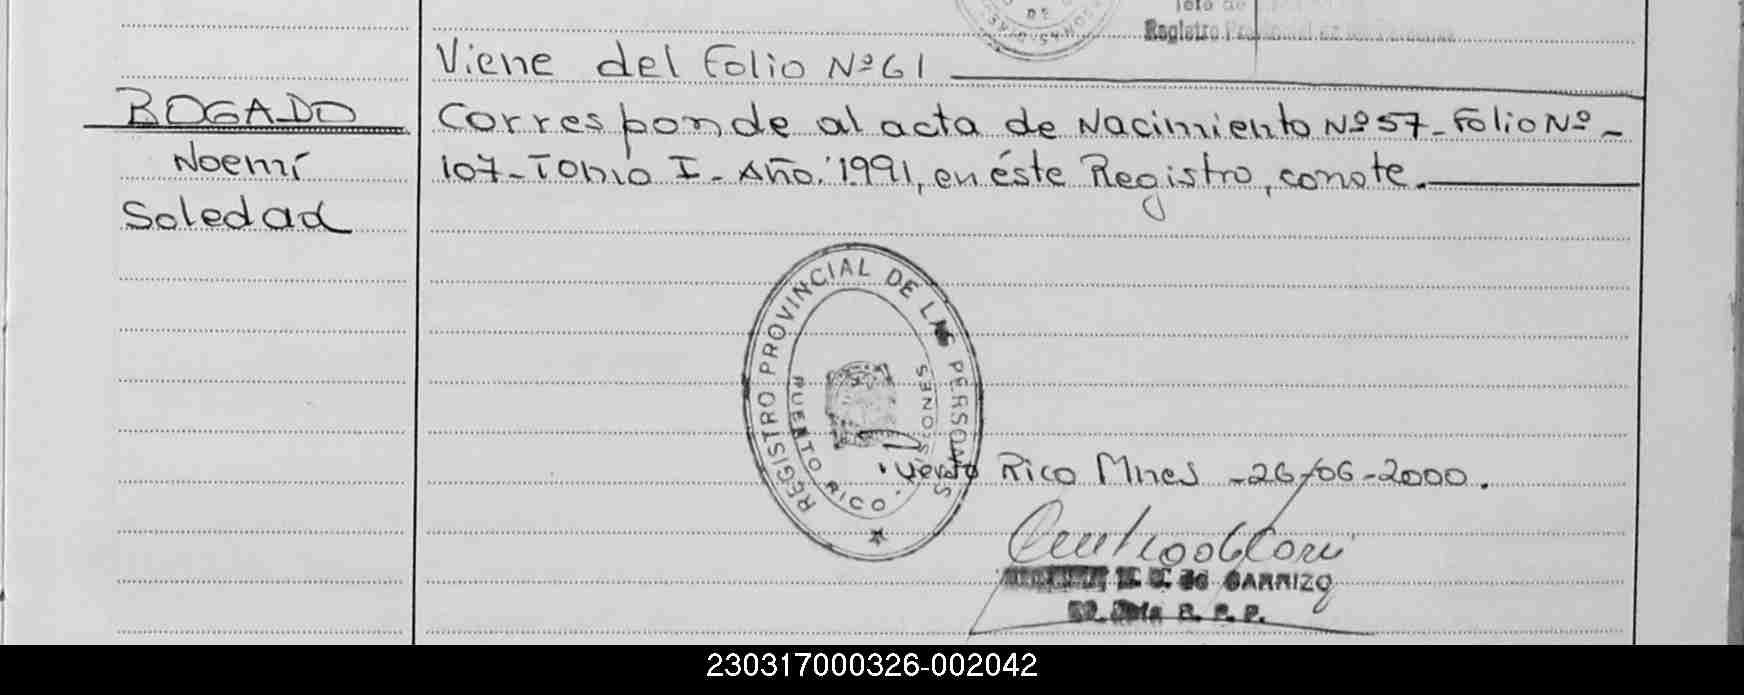 DE
Registro
Viene del Folio Nº 61
BOGADO
Noemí
Soledad
Corresponde al acta de Nacimiento Nº 57- Folio Nº-
107- Tomo I- Año: 1991, en éste Registro, conste.
REGISTRO PROVINCIAL DE LAS PERSONAS
PUERTO RICO - MISIONES
Puerto Rico Mnes -26-06-2000.
de CARRIZO
R. P. P.
230317000326-002042